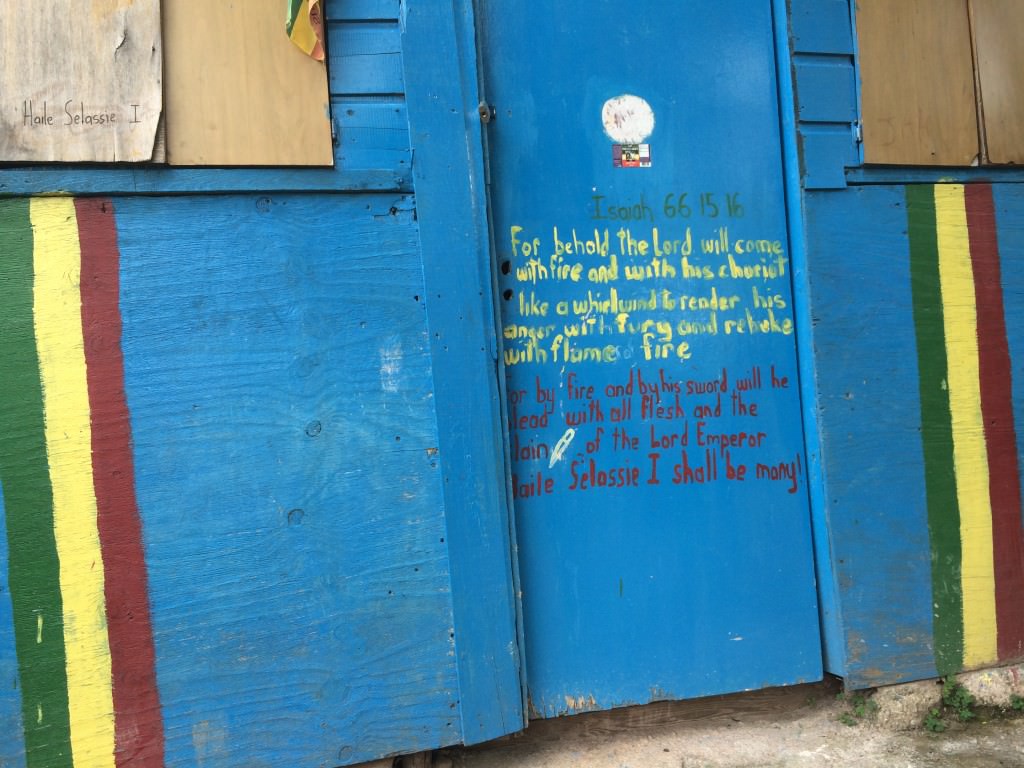 Haile Selassie I
Isaiah 66 15 16
For behold the Lord will come
with fire and with his chariot
like a whirlwind to render his
anger with fury and rebuke
with flame fire
or by fire and by his sword will he
lead with all flesh and the
lain of the Lord Emperor
Haile Selassie I shall be many!